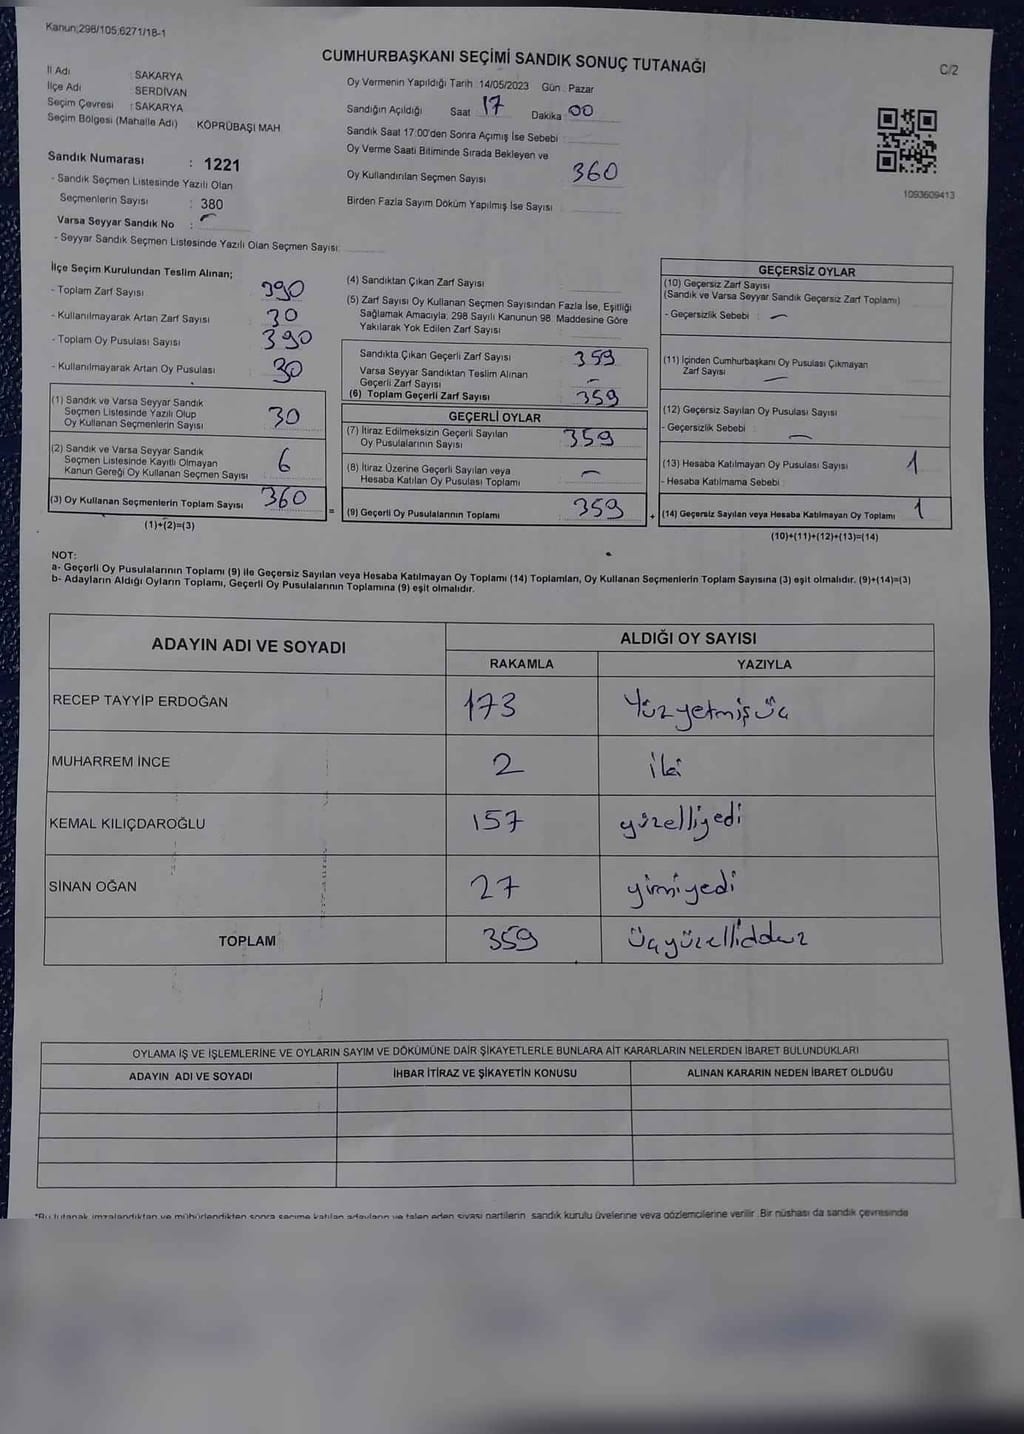 Kanun;298/105;6271/18-1
CUMHURBAŞKANI SEÇİMİ SANDIK SONUÇ TUTANAĞI
C/2
İl Adı : SAKARYA
İlçe Adı : SERDİVAN
Seçim Çevresi : SAKARYA
Seçim Bölgesi (Mahalle Adı) KÖPRÜBAŞI MAH
Sandık Numarası : 1221
- Sandık Seçmen Listesinde Yazılı Olan
Seçmenlerin Sayısı : 380
Varsa Seyyar Sandık No : -
- Seyyar Sandık Seçmen Listesinde Yazılı Olan Seçmen Sayısı:
Oy Vermenin Yapıldığı Tarih 14/05/2023 Gün Pazar
Sandığın Açıldığı Saat 17 Dakika 00
Sandık Saat 17:00'den Sonra Açımış İse Sebebi
Oy Verme Saati Bitiminde Sırada Bekleyen ve
Oy Kullandırılan Seçmen Sayısı 360
Birden Fazla Sayım Döküm Yapılmış İse Sayısı
1093609413
İlçe Seçim Kurulundan Teslim Alınan;
- Toplam Zarf Sayısı 390
- Kullanılmayarak Artan Zarf Sayısı 30
- Toplam Oy Pusulası Sayısı 390
- Kullanılmayarak Artan Oy Pusulası 30
(1) Sandık ve Varsa Seyyar Sandık
Seçmen Listesinde Yazılı Olup
Oy Kullanan Seçmenlerin Sayısı 30
(2) Sandık ve Varsa Seyyar Sandık
Seçmen Listesinde Kayıtlı Olmayan
Kanun Gereği Oy Kullanan Seçmen Sayısı 6
(3) Oy Kullanan Seçmenlerin Toplam Sayısı 360
(1)+(2)=(3)
=
(4) Sandıktan Çıkan Zarf Sayısı
(5) Zarf Sayısı Oy Kullanan Seçmen Sayısından Fazla İse, Eşitliği
Sağlamak Amacıyla, 298 Sayılı Kanunun 98. Maddesine Göre
Yakılarak Yok Edilen Zarf Sayısı
Sandıkta Çıkan Geçerli Zarf Sayısı 359
Varsa Seyyar Sandıktan Teslim Alınan
Geçerli Zarf Sayısı -
(6) Toplam Geçerli Zarf Sayısı 359
GEÇERLİ OYLAR
(7) İtiraz Edilmeksizin Geçerli Sayılan
Oy Pusulalarının Sayısı 359
(8) İtiraz Üzerine Geçerli Sayılan veya
Hesaba Katılan Oy Pusulası Toplamı -
(9) Geçerli Oy Pusulalarının Toplamı 359
+
GEÇERSİZ OYLAR
(10) Geçersiz Zarf Sayısı
(Sandık ve Varsa Seyyar Sandık Geçersiz Zarf Toplamı)
- Geçersizlik Sebebi : -
(11) İçinden Cumhurbaşkanı Oy Pusulası Çıkmayan
Zarf Sayısı -
(12) Geçersiz Sayılan Oy Pusulası Sayısı
- Geçersizlik Sebebi -
(13) Hesaba Katılmayan Oy Pusulası Sayısı 1
- Hesaba Katılmama Sebebi
(14) Geçersiz Sayılan veya Hesaba Katılmayan Oy Toplamı 1
(10)+(11)+(12)+(13)=(14)
NOT:
a- Geçerli Oy Pusulalarının Toplamı (9) ile Geçersiz Sayılan veya Hesaba Katılmayan Oy Toplamı (14) Toplamları, Oy Kullanan Seçmenlerin Toplam Sayısına (3) eşit olmalıdır. (9)+(14)=(3)
b- Adayların Aldığı Oyların Toplamı, Geçerli Oy Pusulalarının Toplamına (9) eşit olmalıdır.
ADAYIN ADI VE SOYADI ALDIĞI OY SAYISI
RAKAMLA YAZIYLA
RECEP TAYYİP ERDOĞAN 173 Yüzyetmişüç
MUHARREM İNCE 2 iki
KEMAL KILIÇDAROĞLU 157 yüzelliyedi
SİNAN OĞAN 27 yirmiyedi
TOPLAM 359
OYLAMA İŞ VE İŞLEMLERİNE VE OYLARIN SAYIM VE DÖKÜMÜNE DAİR ŞİKAYETLERLE BUNLARA AİT KARARLARIN NELERDEN İBARET BULUNDUKLARI
ADAYIN ADI VE SOYADI İHBAR İTİRAZ VE ŞİKAYETİN KONUSU ALINAN KARARIN NEDEN İBARET OLDUĞU
*Bu tutanak imzalandıktan ve mühürlendikten sonra seçime katılan adayların ve talep eden siyasi partilerin, sandık kurulu üyelerine veya gözlemcilerine verilir. Bir nüshası da sandık çevresinde